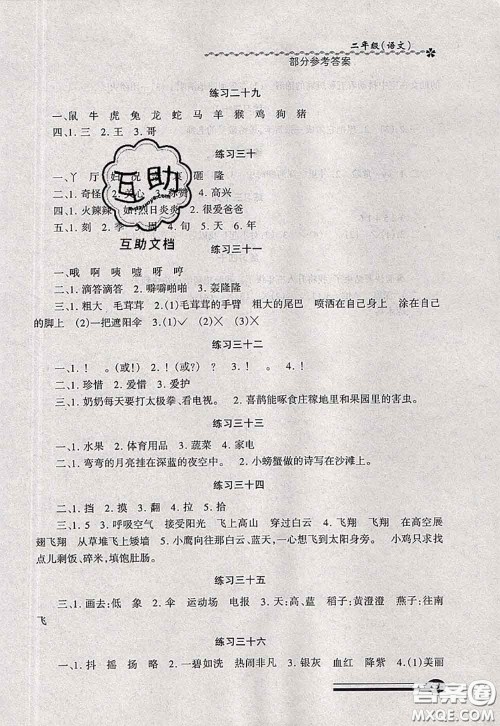 二年级(语文)
部分参考答案
练习二十九
一、鼠 牛 虎 兔 龙 蛇 马 羊 猴 鸡 狗 猪
四、1. 三 2. 王 3. 哥
练习三十
一、丫 厅 妇 砸 隆
二、1. 奇怪 2. 关心 3. 称赞 4. 高兴
四、1. 火辣辣 如:烈日炎炎 2. 很爱爸爸
五、1. 刻 2. 季 3. 周 4. 月 5. 天 6. 年
互助
互助文档
练习三十一
一、哦 啊 咦 嘘 呀 哼
二、1. 滴答滴答 2. 噼噼啪啪 3. 轰隆隆
三、1. 粗大 毛茸茸 2. (1)毛茸茸的手臂 粗大的尾巴 喷洒在身上 涂在自己
的脚上 (2)一把遮阳伞 3. (1)✓ (2)✗
练习三十二
一、1. ! 。(或!) 2. ? 3. ! 。 4. ! 。(或!)
二、1. 珍惜 2. 爱惜 3. 爱护
三、1. 奶奶每天都要打太极拳、看电视。 2. 喜鹊能啄食庄稼地里和果园里的害虫。
练习三十三
一、1. 水果 2. 体育用品 3. 蔬菜 4. 家电
二、1. 弯弯的月亮挂在深蓝的夜空中。 2. 小螃蟹做的诗写在沙滩上。
练习三十四
一、1. 挡 2. 摸 3. 翻 4. 拉 5. 拾
三、1. 5 3. 呼吸空气 接受阳光 飞上高山 穿过白云 4. 飞翔 飞翔 在高空展
翅飞翔 从草堆飞到大树 5. 小鹰向往蓝天、高山、白云,喜欢飞翔。 小鸡只求找
点儿剩饭、碎米,填饱肚肠。
练习三十五
三、1. 画去:低 象 2. 伞 运动场 电报 3. 高、蓝 稻子:黄澄澄 燕子:往南
飞
练习三十六
一、1. 抖 摇 扬 略 2. 一碧如洗 热闹非凡 3. 银灰 血红 降紫 4. (1)美丽
答案圈
MXQE.COM